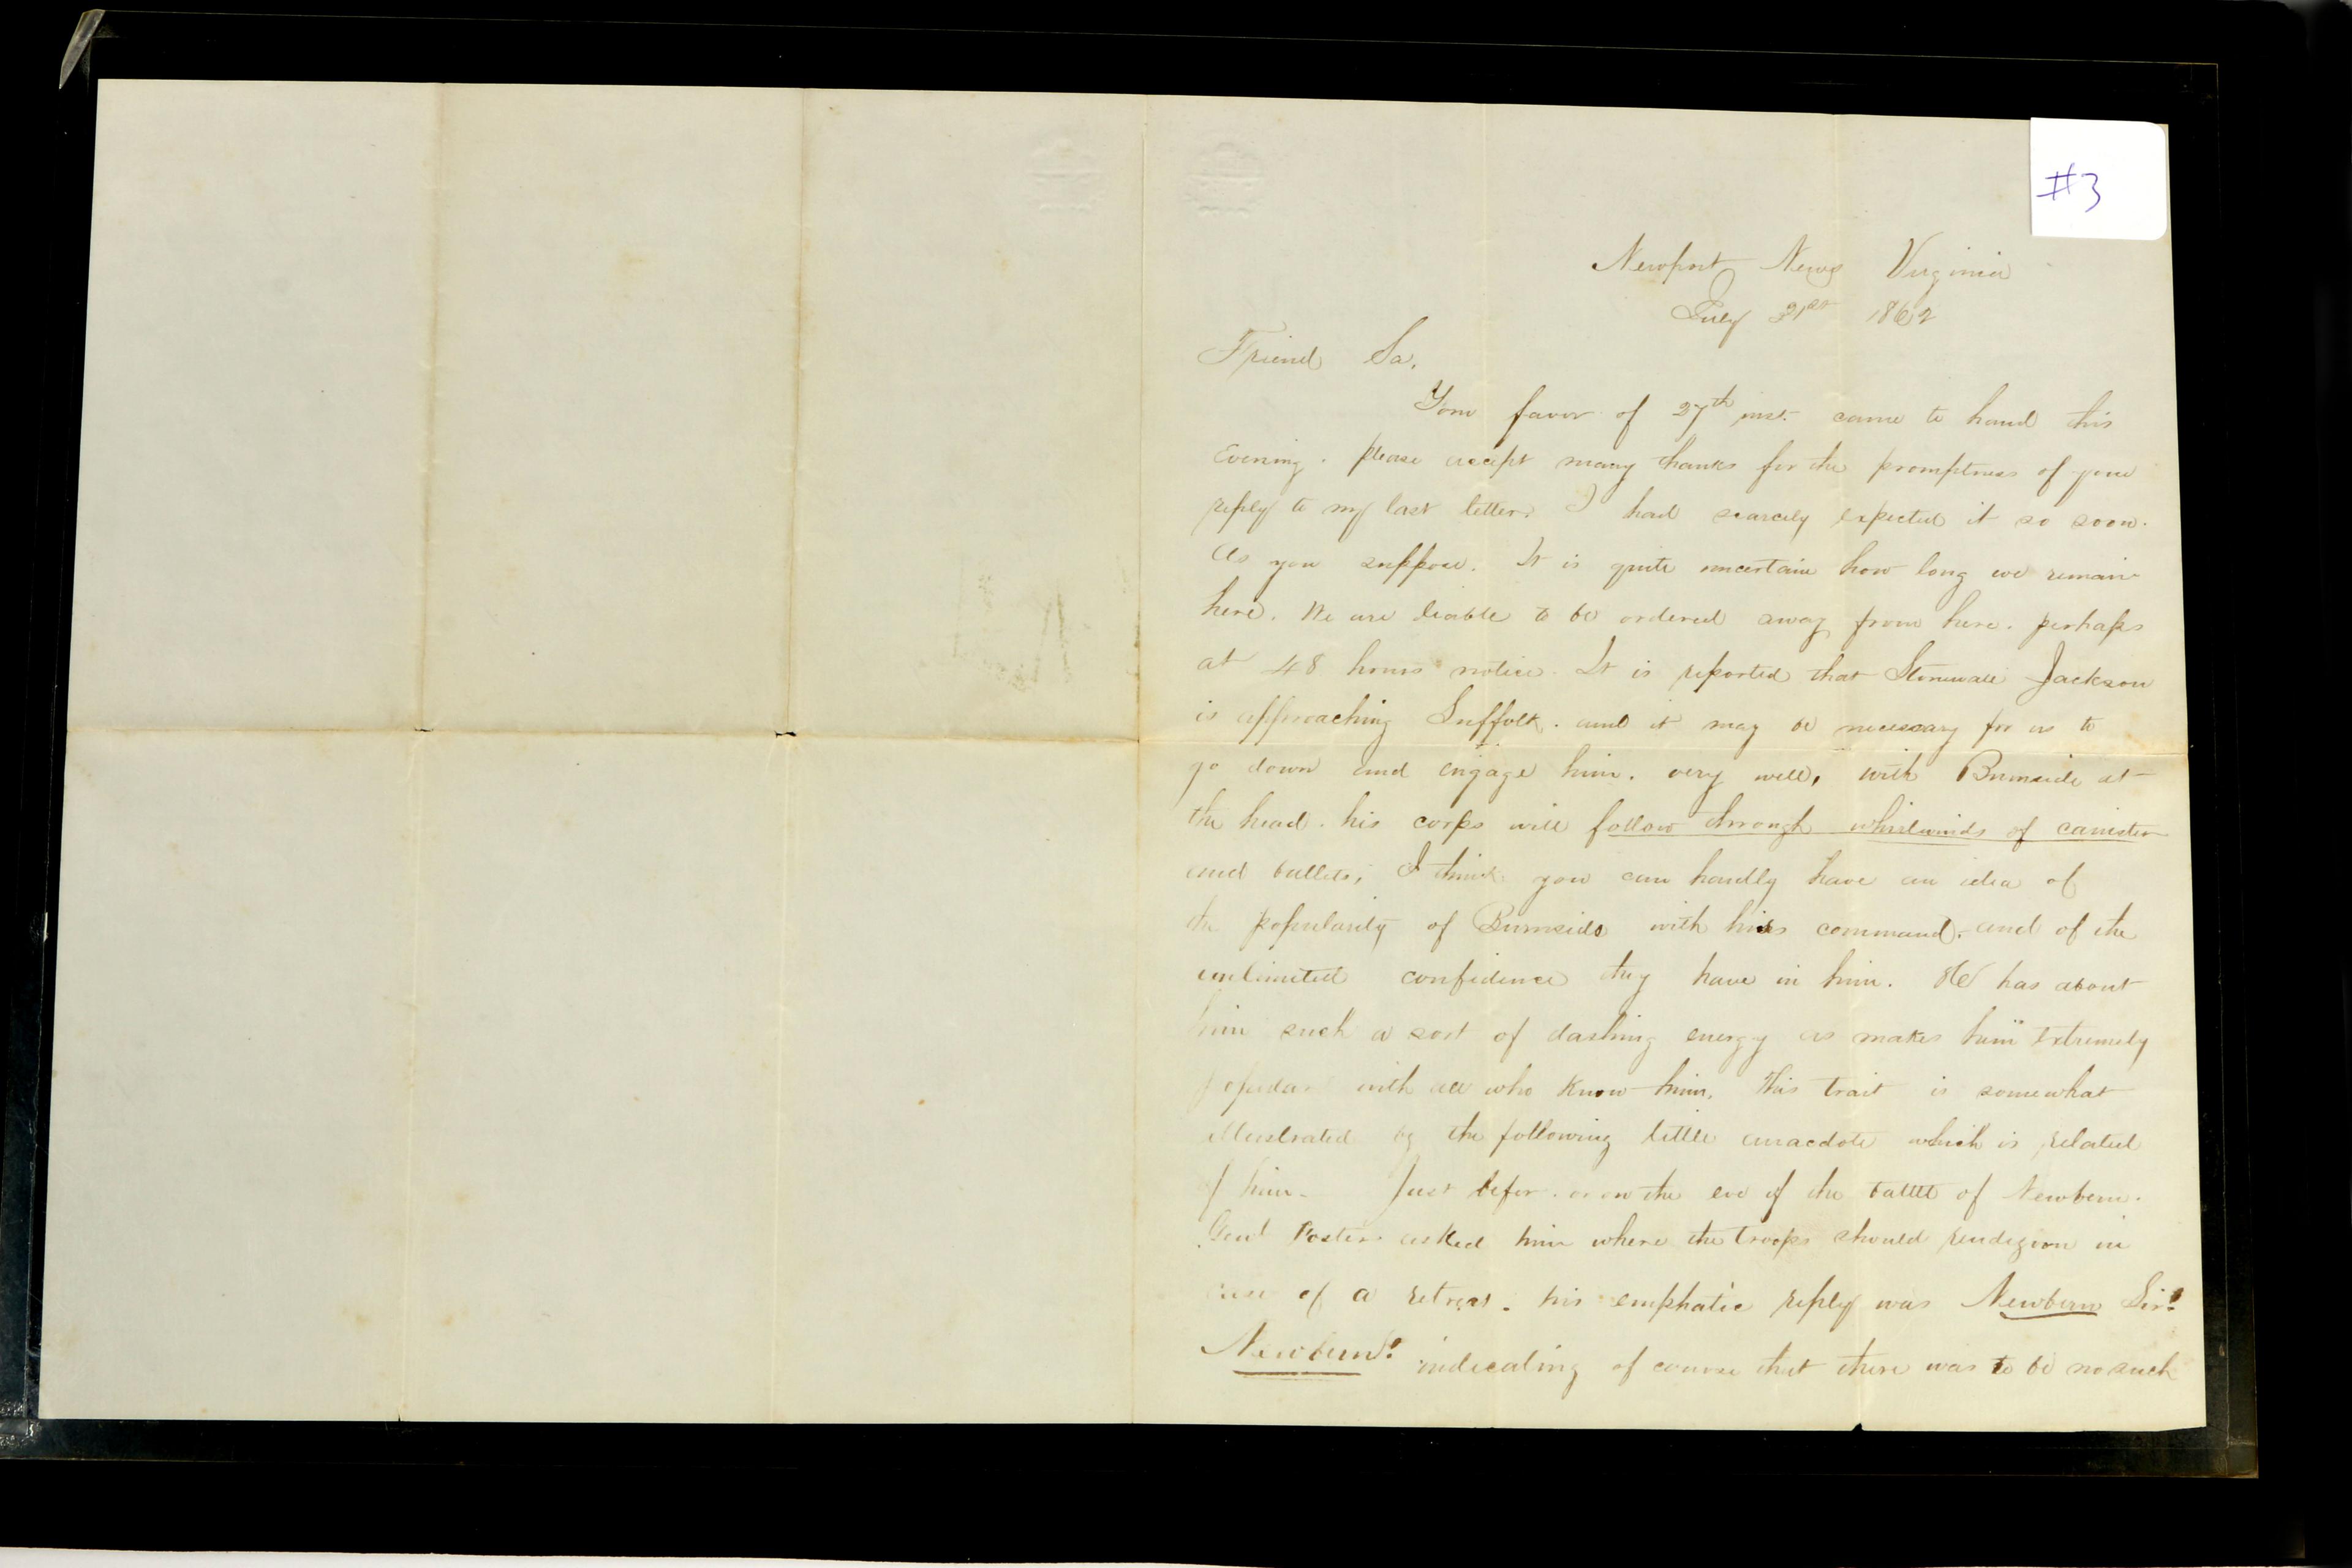 #3
Newport News Virginia
July 31st 1862
Friend Sa.
Your favor of 27th inst. came to hand this
Evening. Please accept many thanks for the promptness of your
reply to my last letter. I had scarcely expected it so soon.
As you suppose. It is quite uncertain how long we remain
here. We are liable to be ordered away from here. perhaps
at 48 hours notice. It is reported that Stonewall Jackson
is approaching Suffolk. and it may be necessary for us to
go down and engage him. very well, with Burnside at
the head. his corps will follow through whirlwinds of canister
and bullets, I think you can hardly have an idea of
the popularity of Burnside with his command. and of the
unlimited confidence they have in him. He has about
him such a sort of dashing energy as makes him extremely
popular with all who know him. This trait is somewhat
illustrated by the following little anacdote which is related
of him. Just befor. or on the eve of the battle of Newbern.
Genl Foster asked him where the troops should rendezvou in
case of a retreat. his emphatic reply was Newbern Sir!
Newbern! indicating of course that there was to be no such